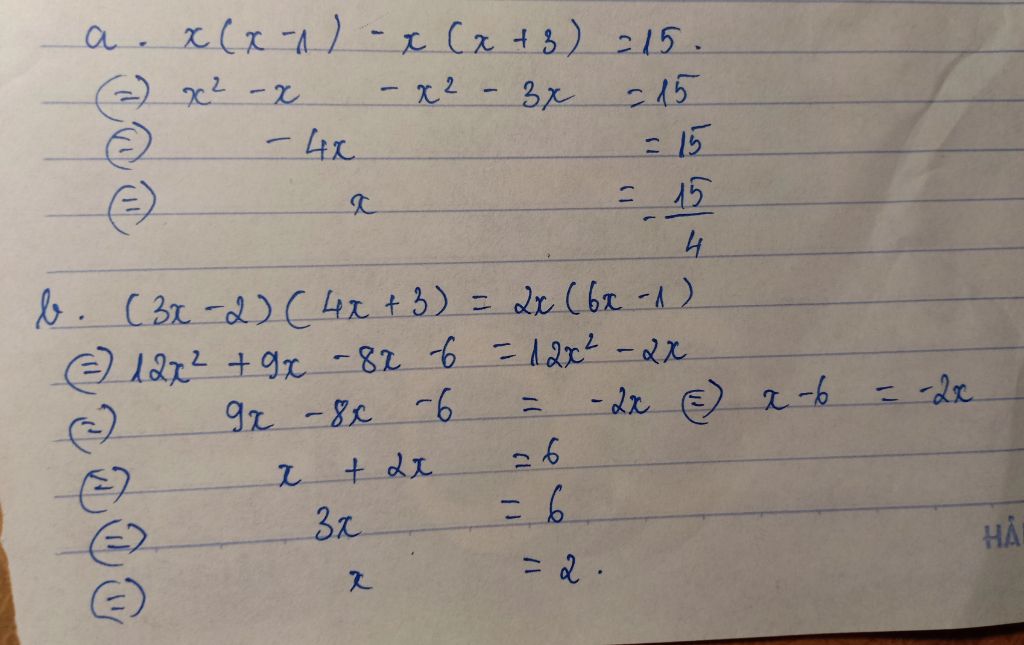 a. x(x-1) - x(x+3) = 15.
⇔ x² - x - x² - 3x = 15
⇔ -4x = 15
⇔ x = -15/4
b. (3x-2)(4x+3) = 2x(6x-1)
⇔ 12x² + 9x - 8x - 6 = 12x² - 2x
⇔ 9x - 8x - 6 = -2x ⇔ x - 6 = -2x
⇔ x + 2x = 6
⇔ 3x = 6
⇔ x = 2.